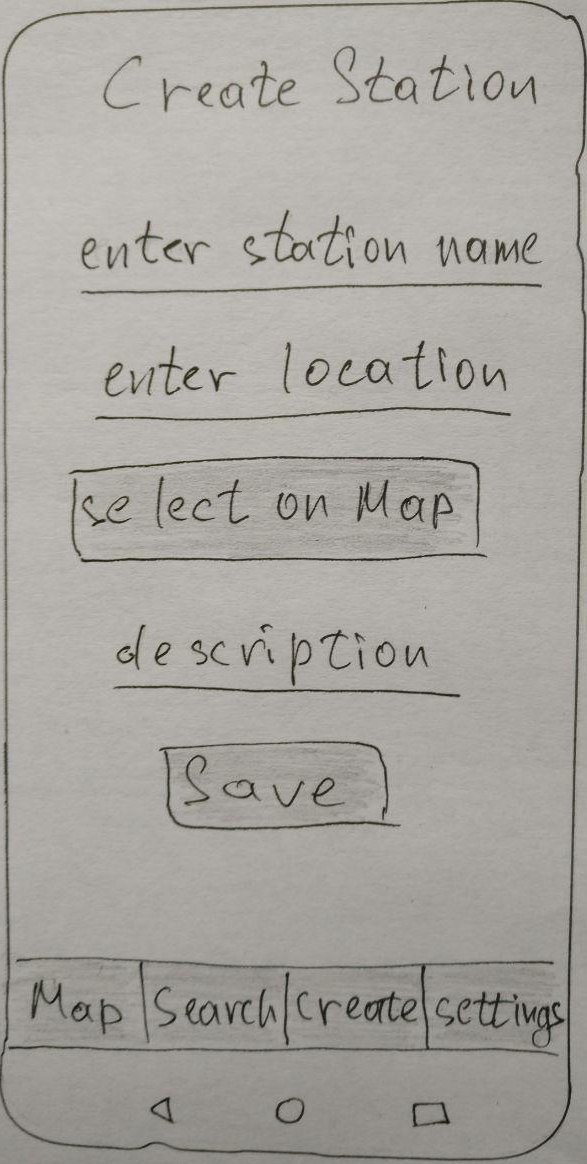 Create Station
enter station name
enter location
select on Map
description
Save
Map Search Create settings